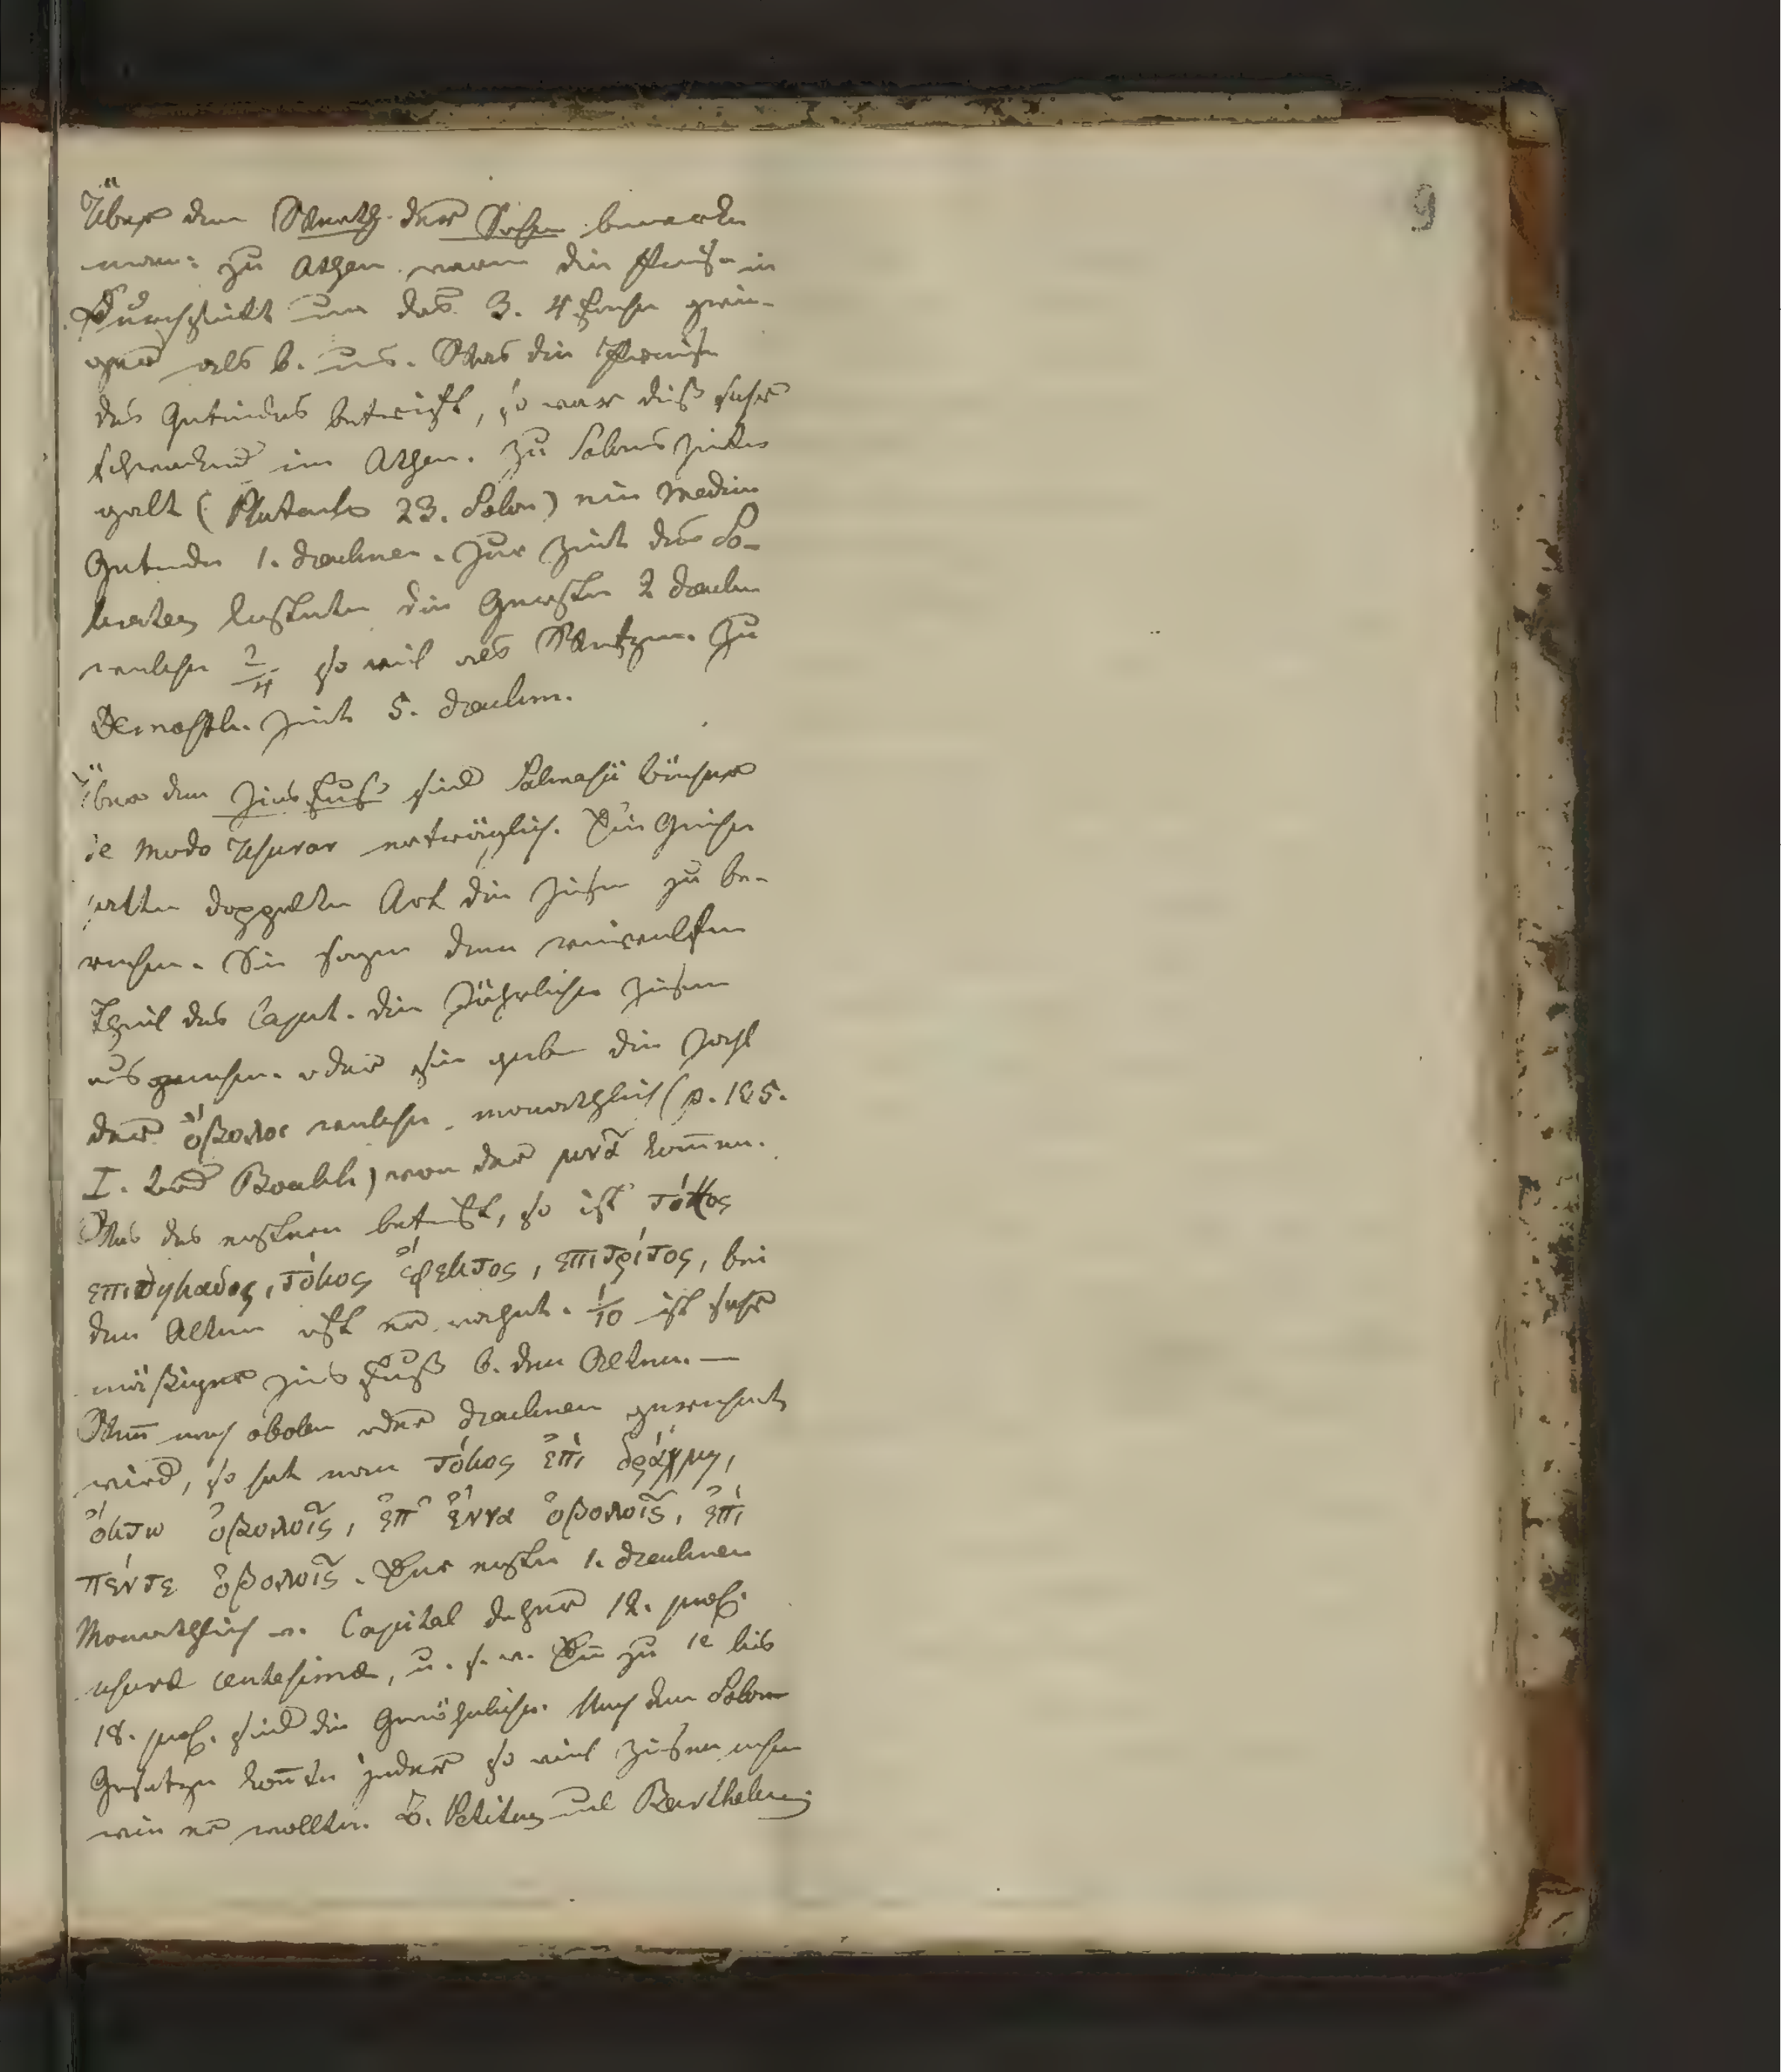 9
Über den Werth der Sachen bemerke
man: zu Athen waren die Preise im
Durchschnitt um das 3. 4 fache gerin-
ger als b. uns. Was die Preise
des Getreides betrifft, so war dieß sehr
schwankend in Athen. Zu Solons Zeiten
galt (Plutarch 23. Solon) ein Medim
Getreide 1. drachmen. Zur Zeit des So-
krates kostete die Gerste 2 drachm
welche 2/4 so viel als Waitzen. Zu
Demosth. Zeit 5. drachm.
Über den Zinsfuß sind Salmasii bücher
de Modo Usurar erträglich. Die Griechen
hatten doppelte Art die Zinse zu be-
rechnen. Sie sagen den wievielten
Theil des Caput. die Jährlichen Zinsen
ausmachen. oder sie geben die Zahl
der ὄβολος welche monathlich (p. 185.
I. Bd Boekh) von der μνᾶ komen.
Was das erstere betrifft, so ist τόκος
επιδηκαδος, τόκος ἔφεκτος, επιτρίτος, bei
den Alten ist er erwähnt. 1/10 ist sehr
mäßiger Zins Fuß b. den Alten. —
Wen nach obolen oder drachmen gerechnet
wird, so hat man τόκος ἐπὶ δράχμη,
ὄκτω ὀβολοῖς, ἐπ' ἔννα ὀβολοῖς, ἐπὶ
πέντε ὀβολοῖς. Der erste 1. drachmen
Monathlich v. Capital daher 12. proc.
usurae centesimae, u. s. w. Die zu 12 bis
18. proc. sind die Gewöhnlichen. Nach den Solon
Gesetzen konte jeder so viel Zinsen nehmen
wie er wollte. S. Petitus und Barthelemy